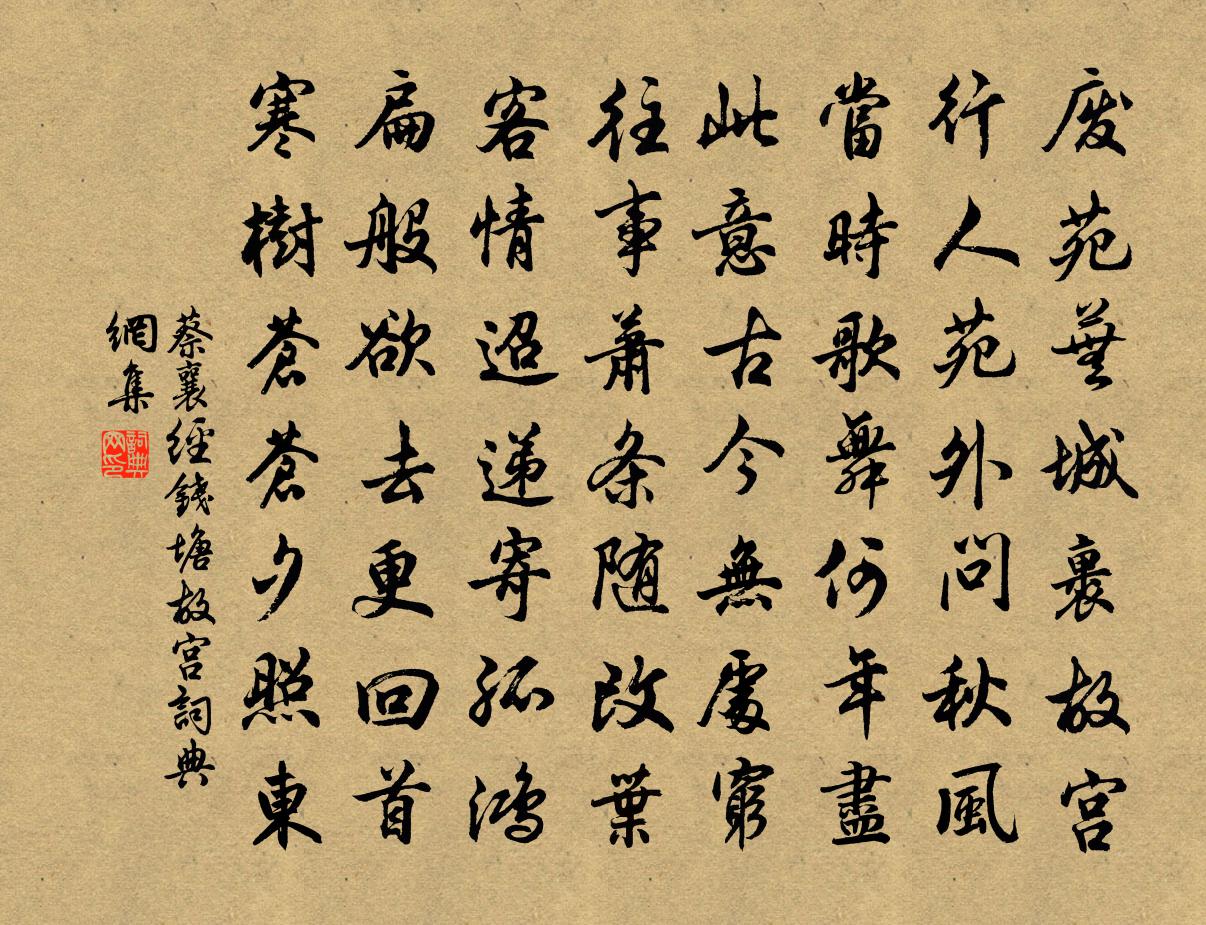 廢苑蕪城裏故宮
行人苑外問秋風
當時歌舞何年盡
此意古今無處窮
往事蕭条随改葉
客情迢递寄孤鴻
扁般欲去更回首
寒樹蒼蒼夕照東
蔡襄經錢塘故宮詞典
網集
詞典網印